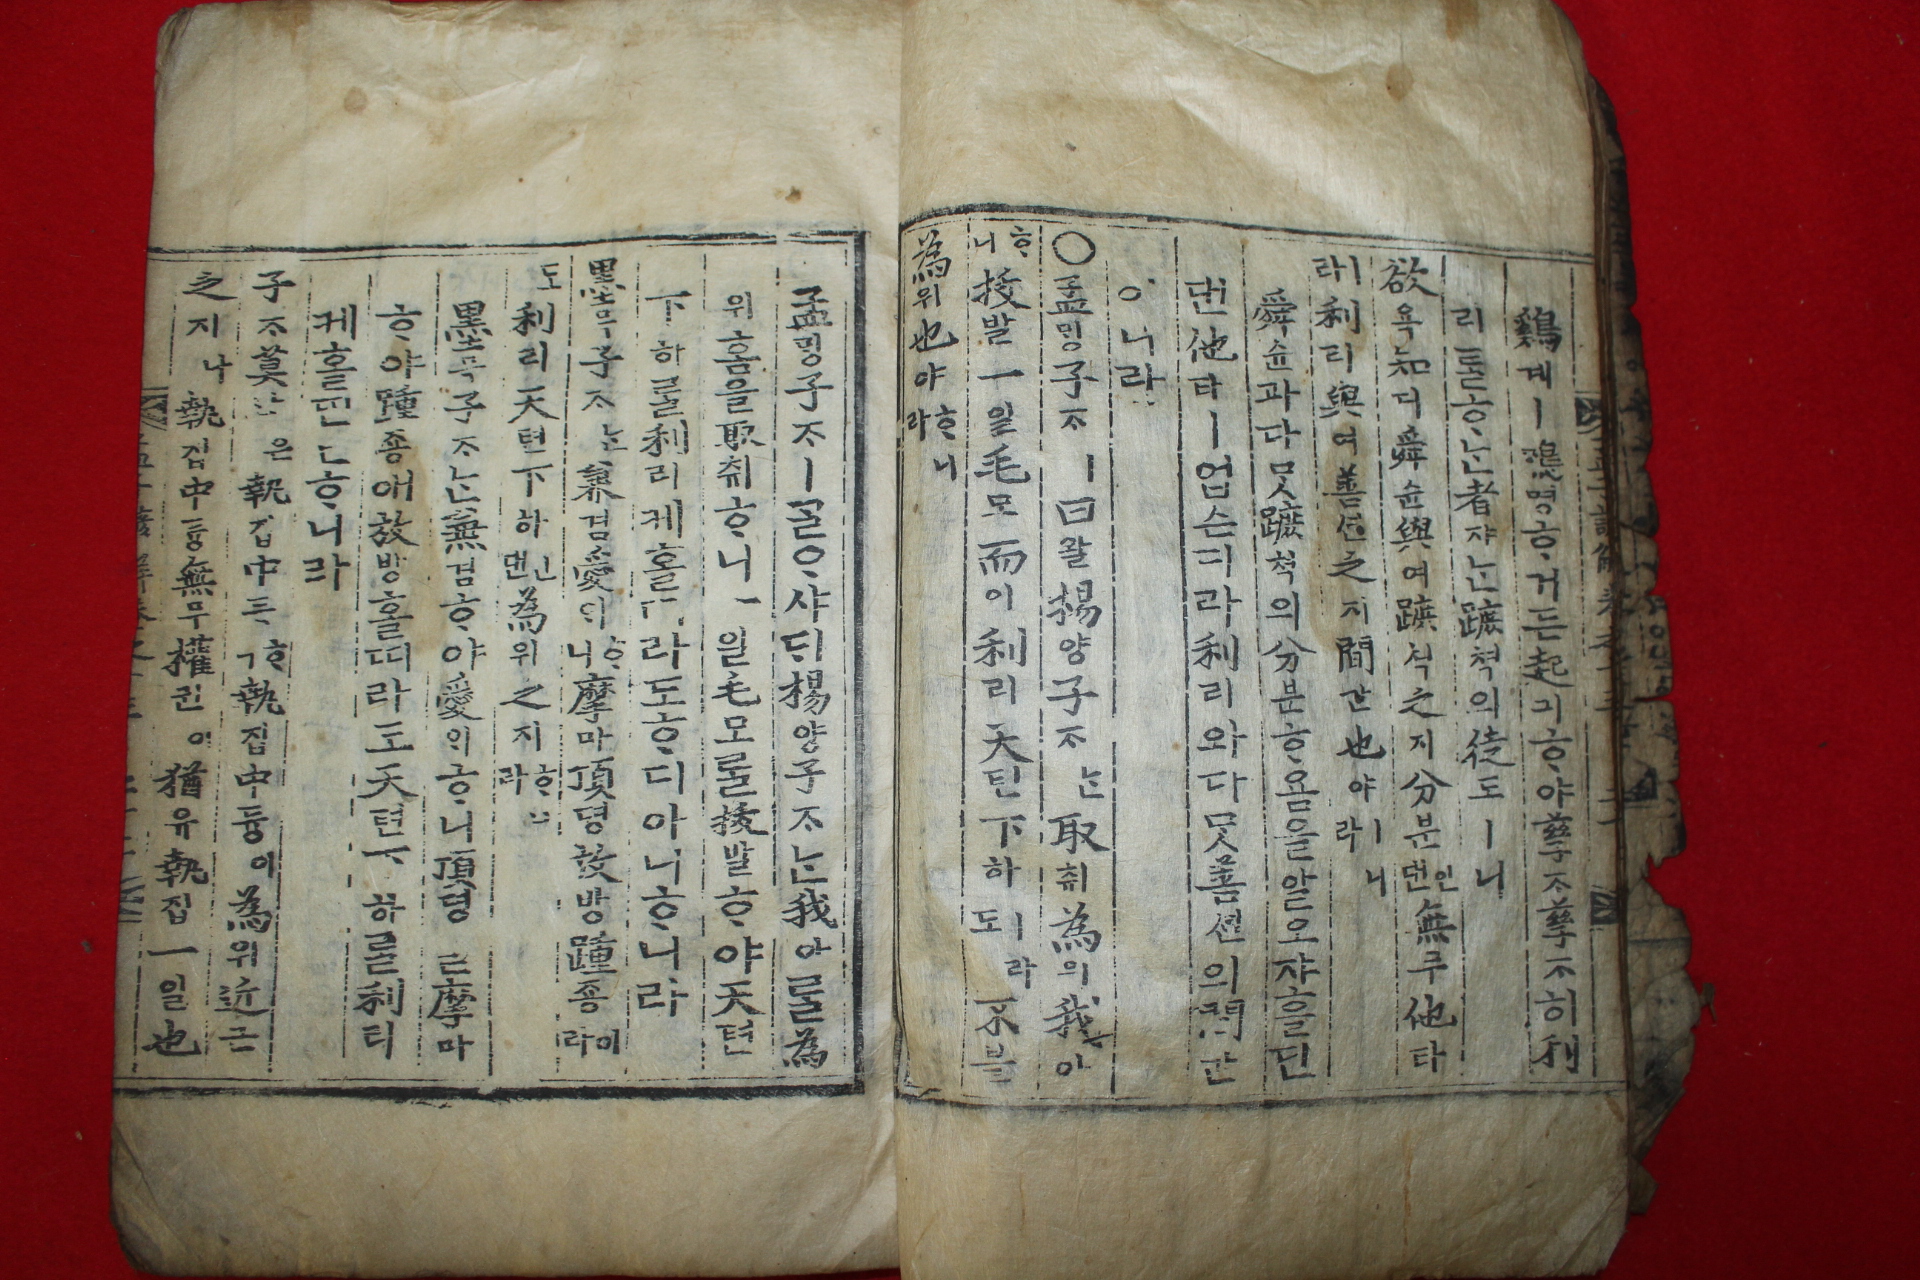 鷄계ㅣ鳴명ᄒᆞ거든起긔ᄒᆞ야孶ᄌᆞ孶ᄌᆞ히利
리를ᄒᆞᄂᆞᆫ者쟈ᄂᆞᆫ蹠쳑의徒도ㅣ니
欲욕知디舜슌與여蹠쳑之지分분인댄無무他타
ㅣ라利리與여善션之지間간也야ㅣ니라
舜슌과다ᄆᆺ蹠쳑의分분ᄒᆞ욤을알오쟈홀딘
댄他타ㅣ업슨디라利리와다ᄆᆺ善션의間간
이니라
○孟ᄆᆡᆼ子ᄌᆞㅣ曰왈楊양子ᄌᆞᄂᆞᆫ取취為위我아
ᄒᆞ니拔발一일毛모而이利리天텬下하ㅣ라도不블
為위也야ᄒᆞ니라
孟ᄆᆡᆼ子ᄌᆞㅣᄀᆞᆯᄋᆞ샤ᄃᆡ楊양子ᄌᆞᄂᆞᆫ我아ᄅᆞᆯ為
위홈을取취ᄒᆞ니一일毛모ᄅᆞᆯ拔발ᄒᆞ야天텬
下하ᄅᆞᆯ利리케홀디라도ᄒᆞ디아니ᄒᆞ니라
墨믁子ᄌᆞᄂᆞᆫ兼겸愛ᄋᆡᄒᆞ니摩마頂뎡放방踵죵이라
도利리天텬下하ᅟᅵᆫ댄為위之지ᄒᆞ니라
墨믁子ᄌᆞᄂᆞᆫ兼겸ᄒᆞ야愛ᄋᆡᄒᆞ니頂뎡을摩마
ᄒᆞ야踵죵애放방홀띠라도天텬下하ᄅᆞᆯ利리
케홀딘댄ᄒᆞ니라
子ᄌᆞ莫막은執집中듕ᄒᆞ니執집中듕이為위近근
之지나執집中듕無무權권이猶유執집一일也